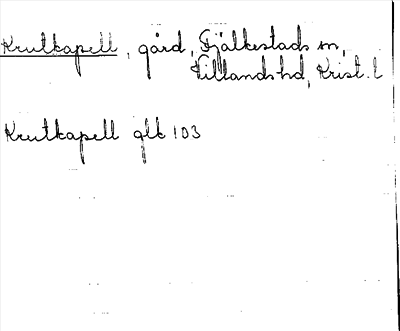 Krutkapell, gård, Fjälkestads sn,
Villands hd, Krist. l
Krutkapell glt 103